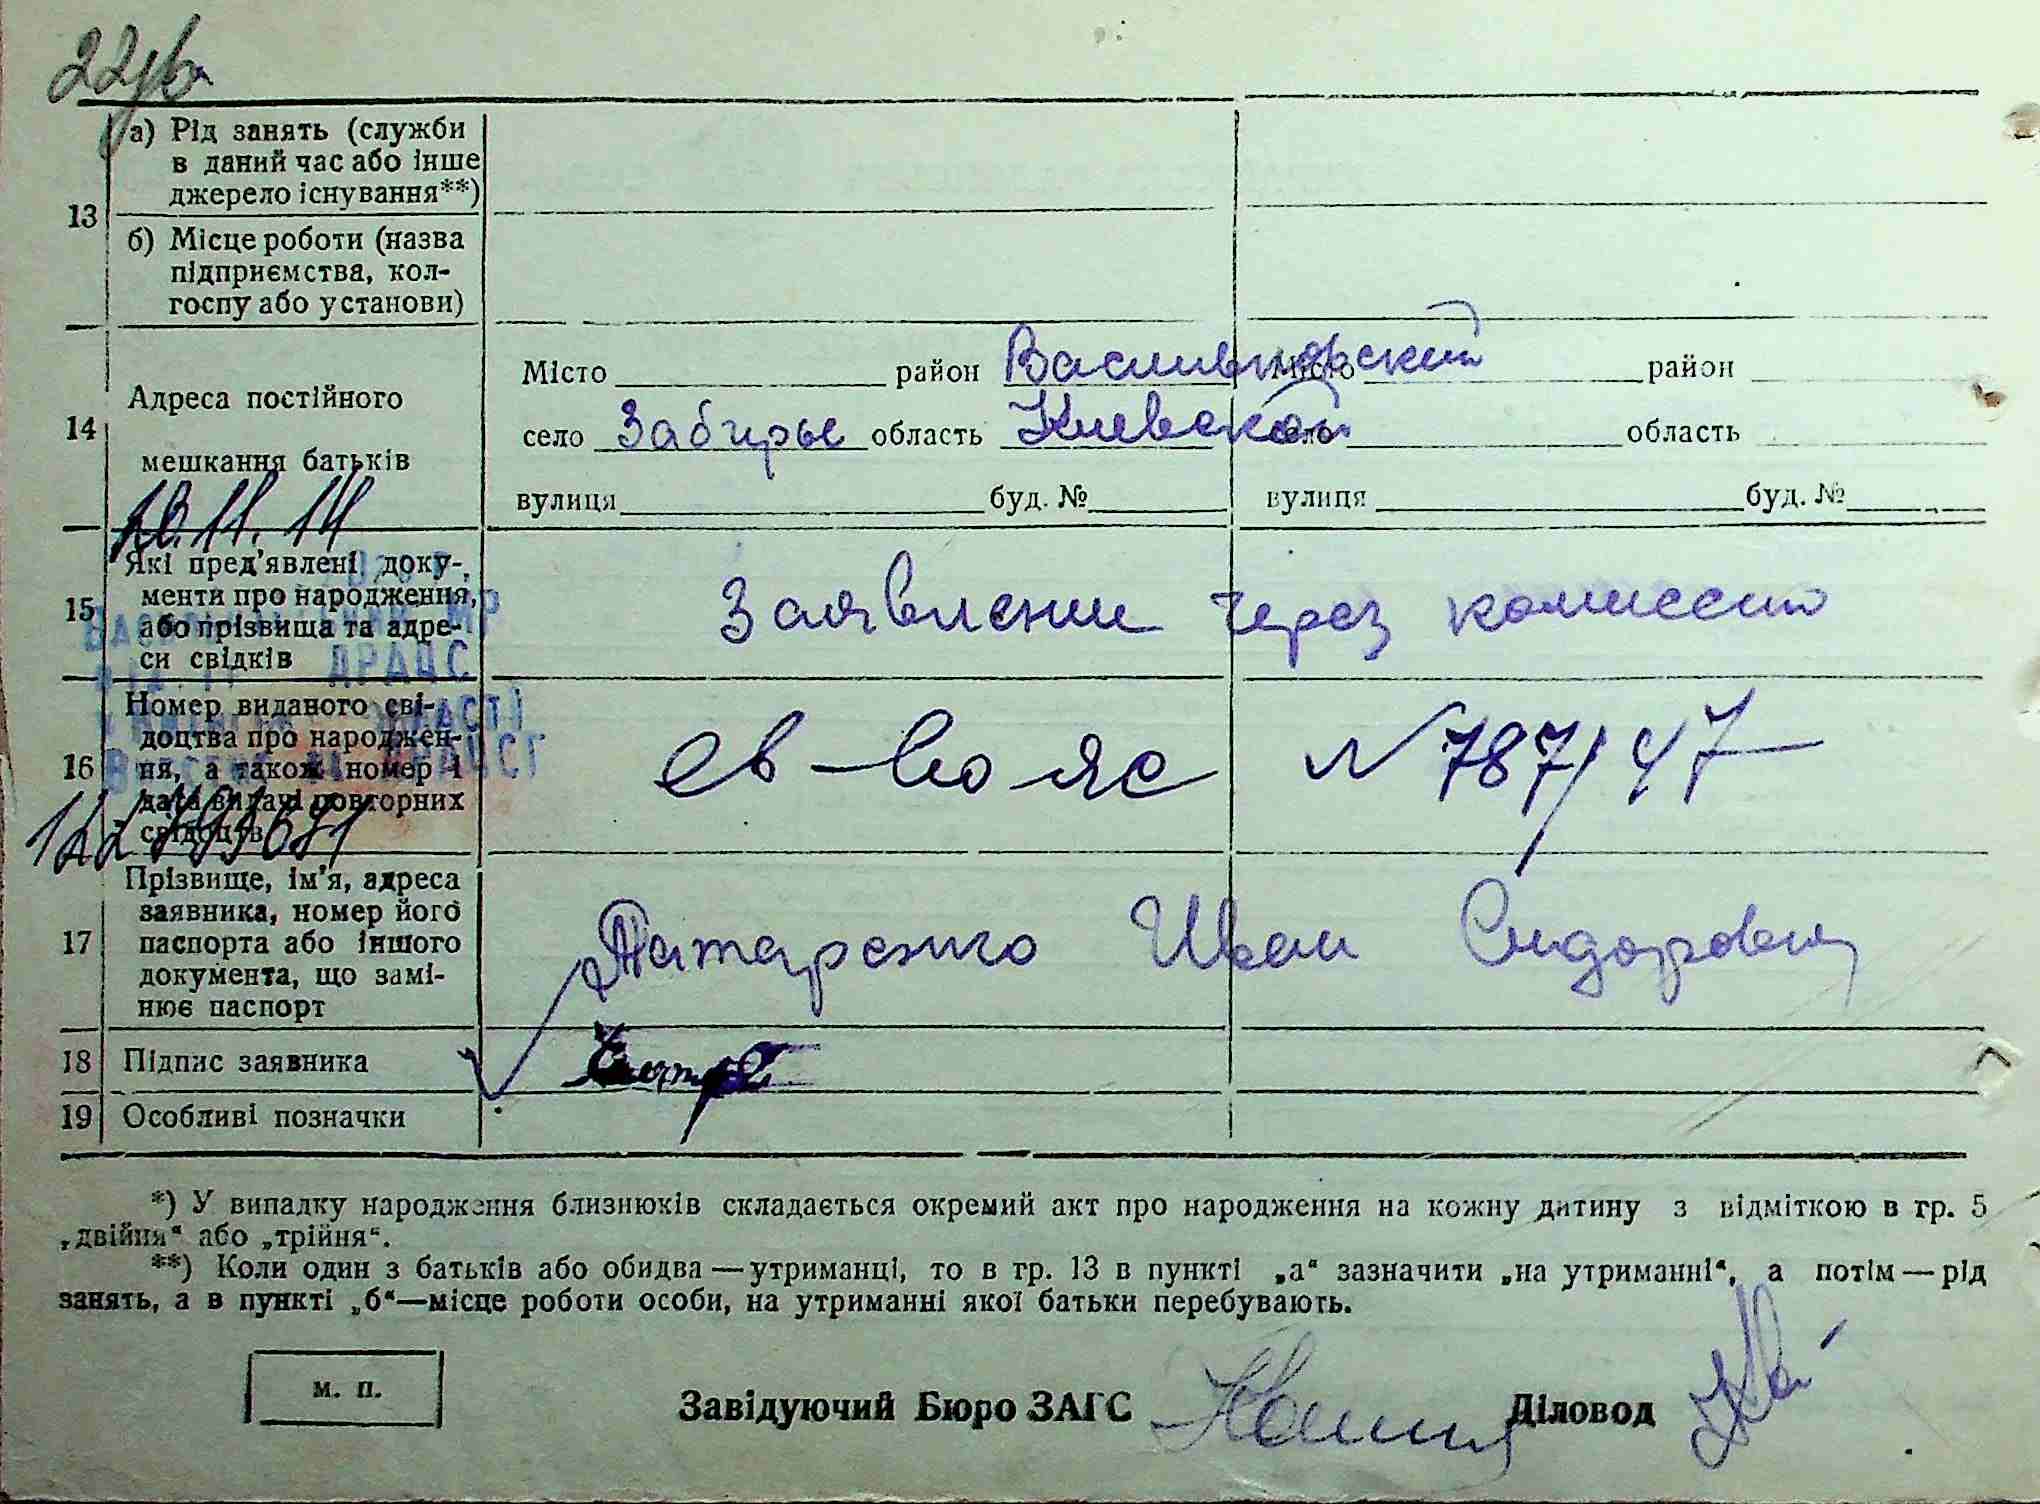 22зв
13 а) Рід занять (служби
в даний час або інше
джерело існування**)
б) Місце роботи (назва
підприємства, кол-
госпу або установи)
14 Адреса постійного
мешкання батьків
Місто район Васильковский Місто район
село Забирье область Киевской село область
вулиця буд. № вулиця буд. №
15 Які пред'явлені доку-
менти про народження,
або прізвища та адре-
си свідків
Заявление через комиссию
16 Номер виданого сві-
доцтва про народжен-
ня, а також номер і
дата видачі повторних
свідоцтв
св-во яс № 787/47
ДРАЦС
17 Прізвище, ім'я, адреса
заявника, номер його
паспорта або іншого
документа, що замі-
нює паспорт
Татаренко Иван Сидорович
18 Підпис заявника
19 Особливі позначки
*) У випадку народження близнюків складається окремий акт про народження на кожну дитину з відміткою в гр. 5
„двійня“ або „трійня“.
**) Коли один з батьків або обидва — утриманці, то в гр. 13 в пункті „а“ зазначити „на утриманні“, а потім — рід
занять, а в пункті „б“—місце роботи особи, на утриманні якої батьки перебувають.
м. п.
Завідуючий Бюро ЗАГС Діловод